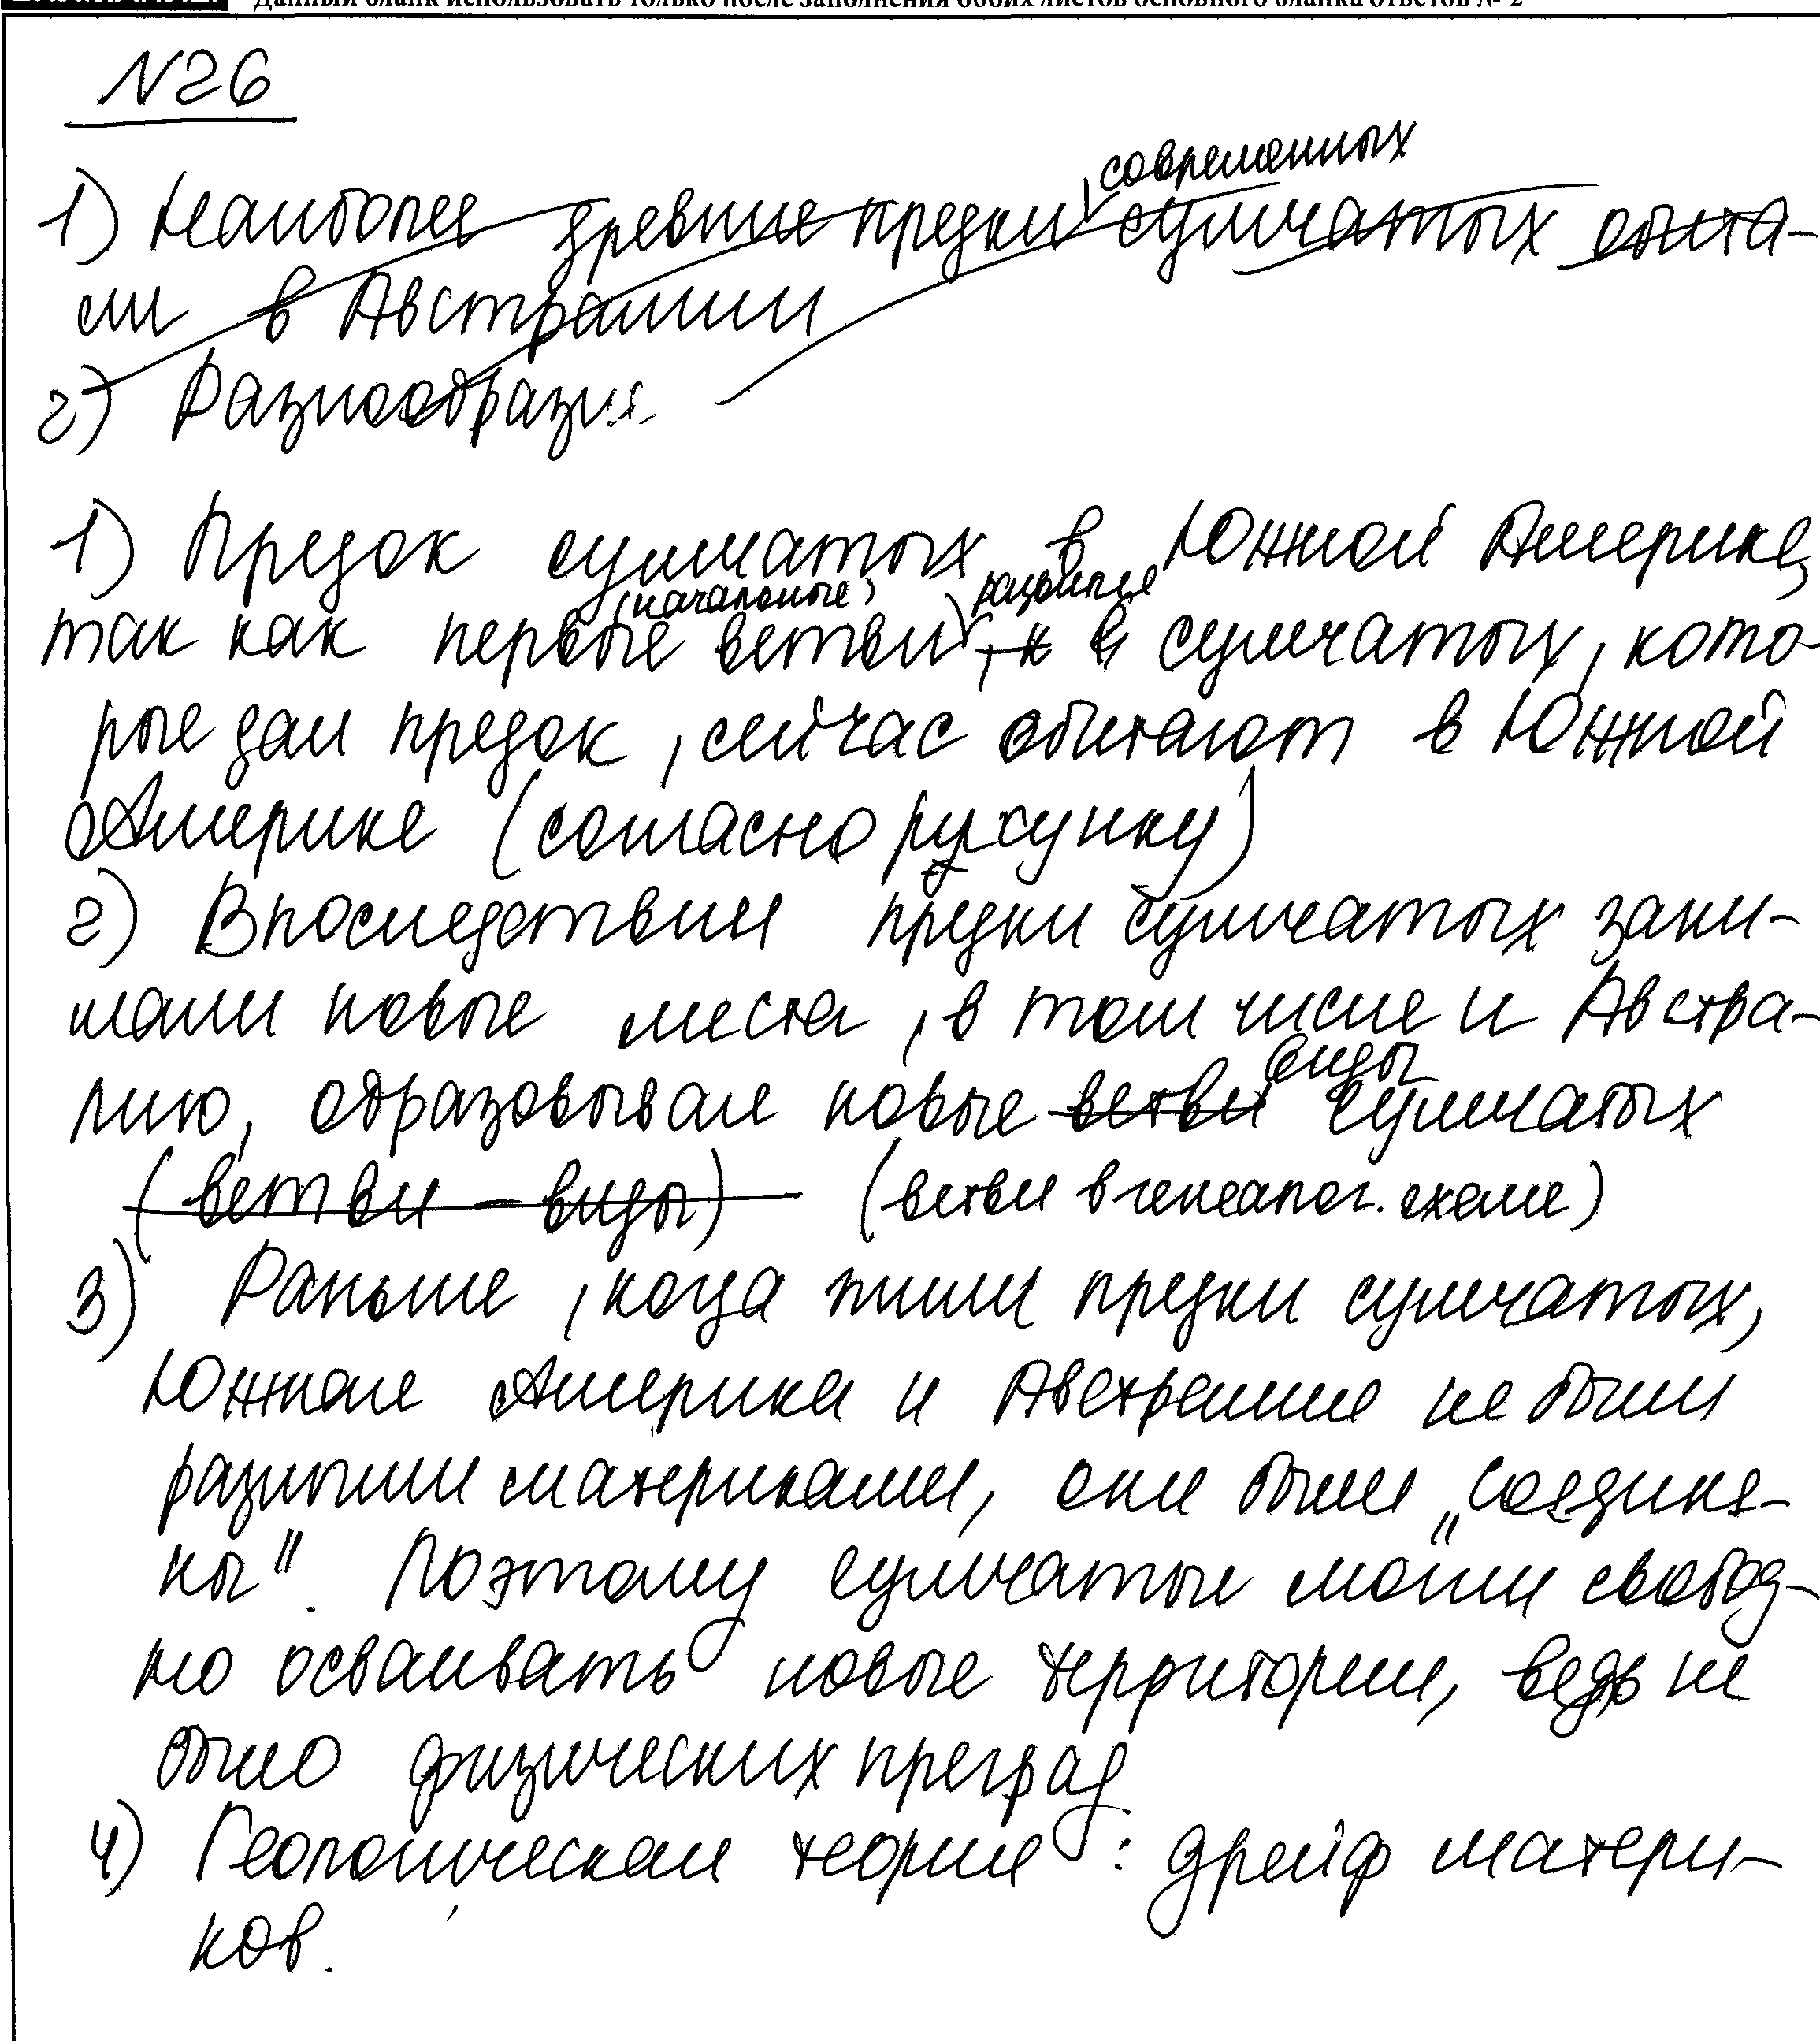 Данный бланк использовать только после заполнения обоих листов основного бланка ответов № 2
№26
современных
1) Наиболее древние предки сумчатых обита-
ли в Австралии
2) Разнообразие
1) Предок сумчатых в Южной Америке,
(начальные)
так как первые ветви, к сумчатых, кото-
рые дал предок, сейчас обитают в Южной
Америке (согласно рисунку)
2) Впоследствии предки сумчатых зани-
мали новые места, в том числе и Австра-
лию, образовывая новые ветви виды сумчатых
(ветви – виды) (ветви в генеалог. схеме)
3) Раньше, когда жили предки сумчатых,
Южная Америка и Австралия не были
разными материками, они были „соедине-
ны". Поэтому сумчатые могли свобод-
но осваивать новые территории, ведь не
было физических преград
4) Геологическая теория: дрейф матери-
ков.